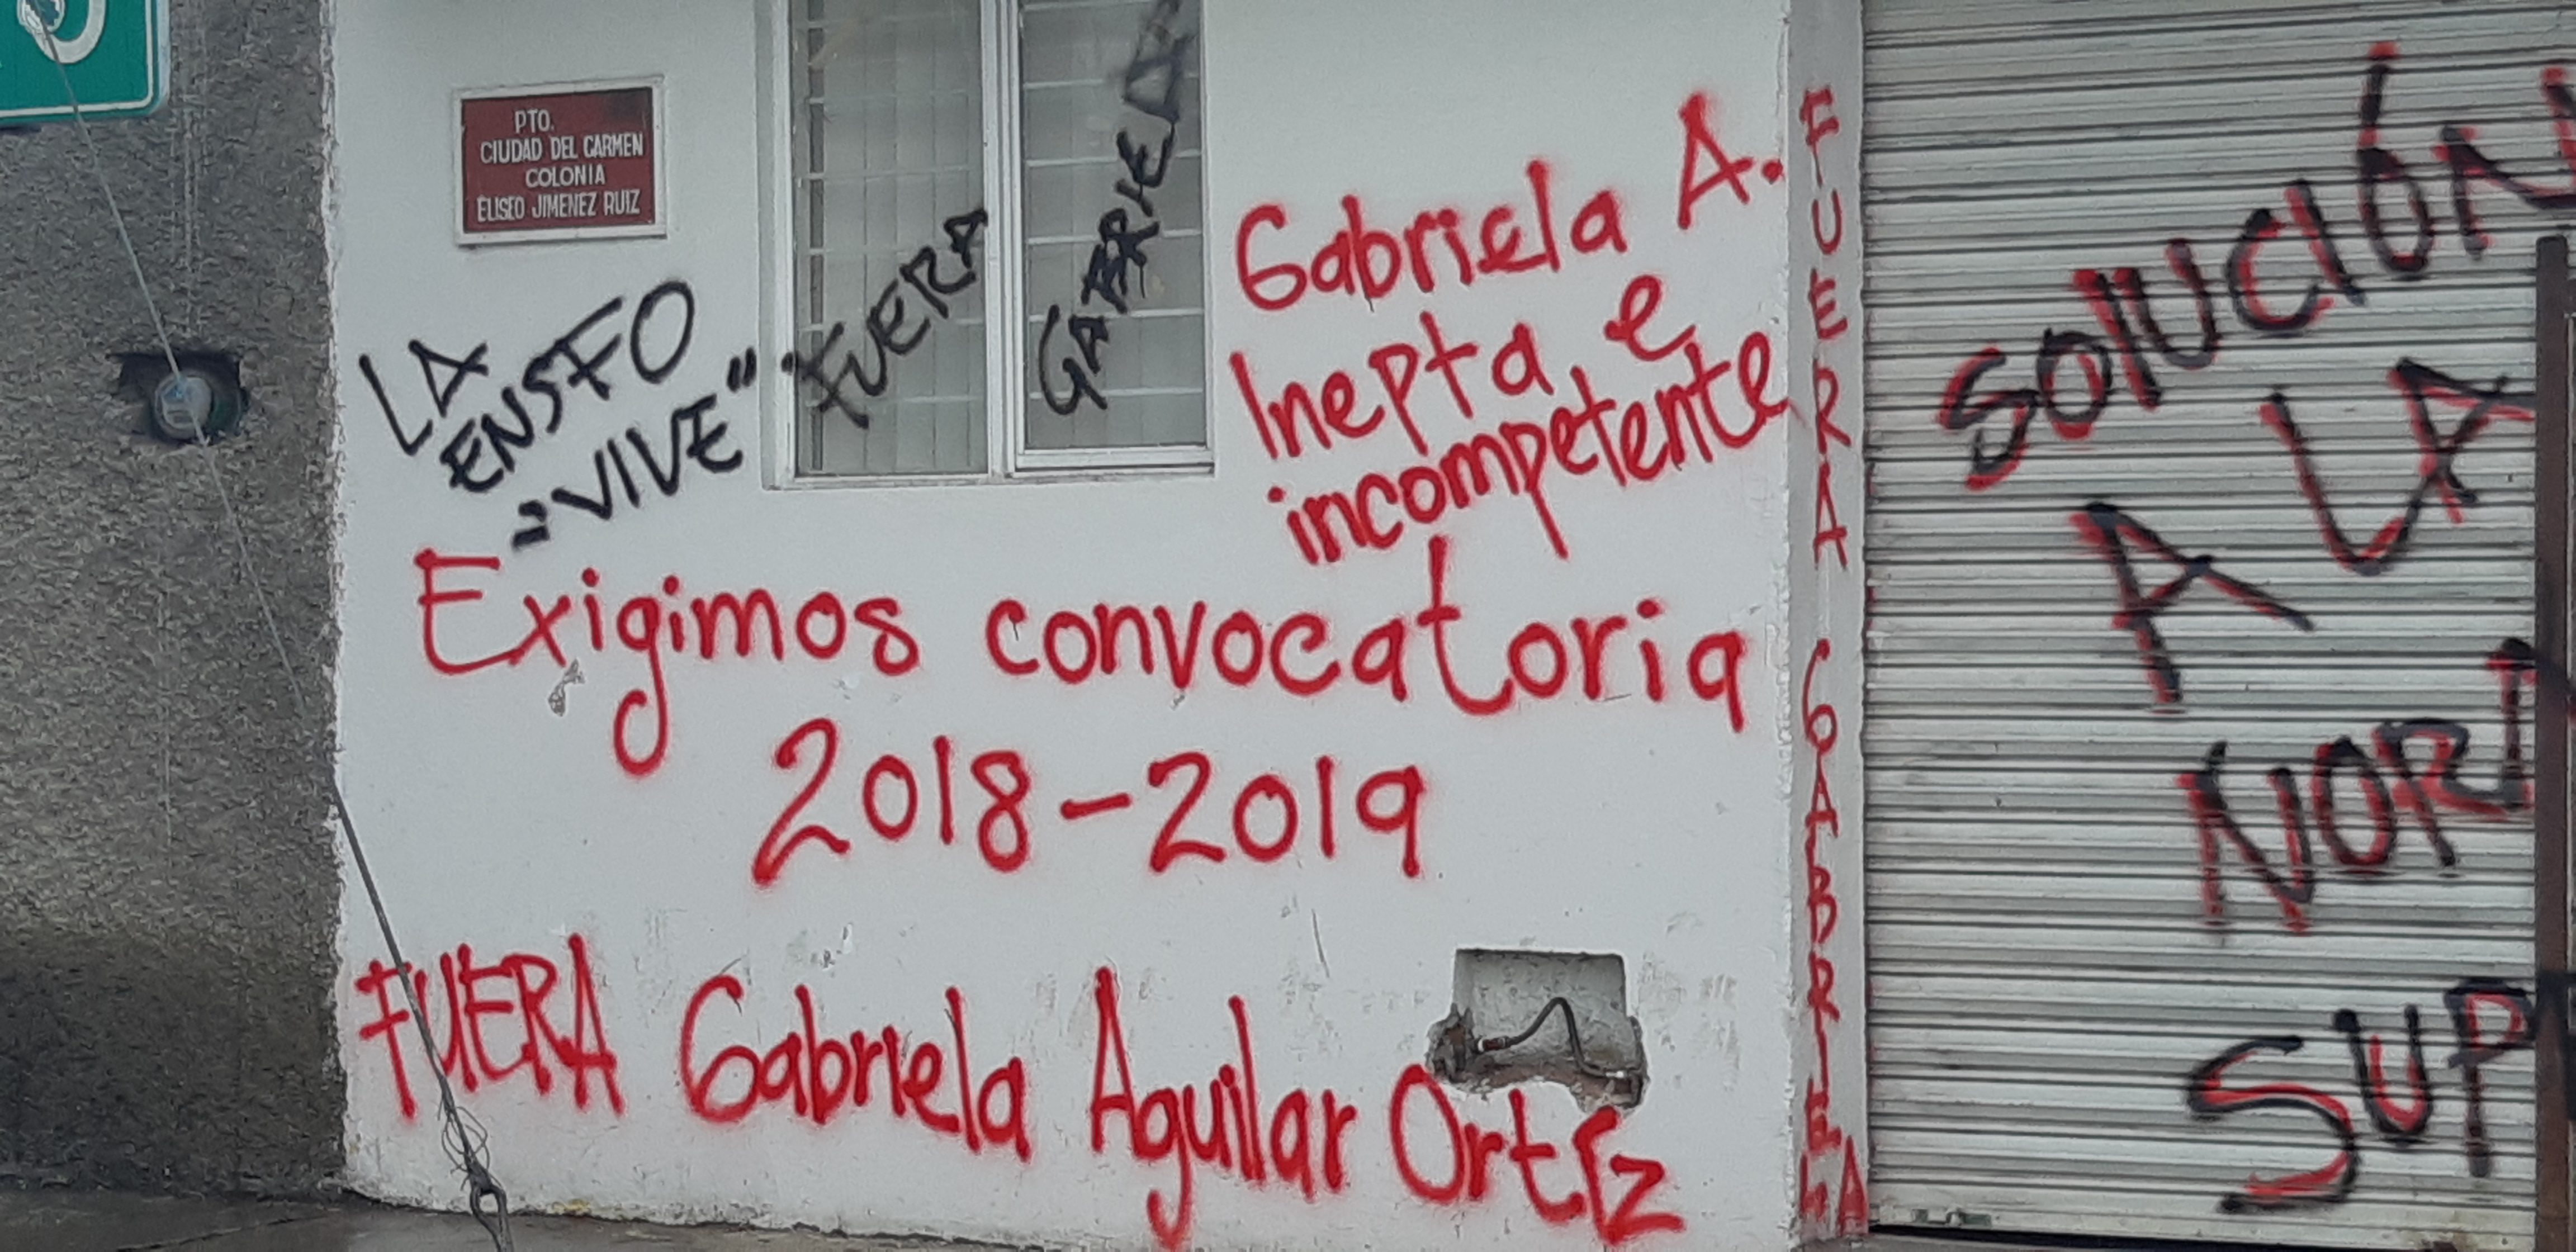 PTO.
CIUDAD DEL CARMEN
COLONIA
ELISEO JIMENEZ RUIZ
LA
ENSFO
"VIVE"
FUERA
GABRIELA
Gabriela A.
Inepta e
incompetente
Exigimos convocatoria
2018-2019
FUERA Gabriela Aguilar Ortíz
FUERA GABRIELA
SOlUCIÓN
A LA
NOR
SUP